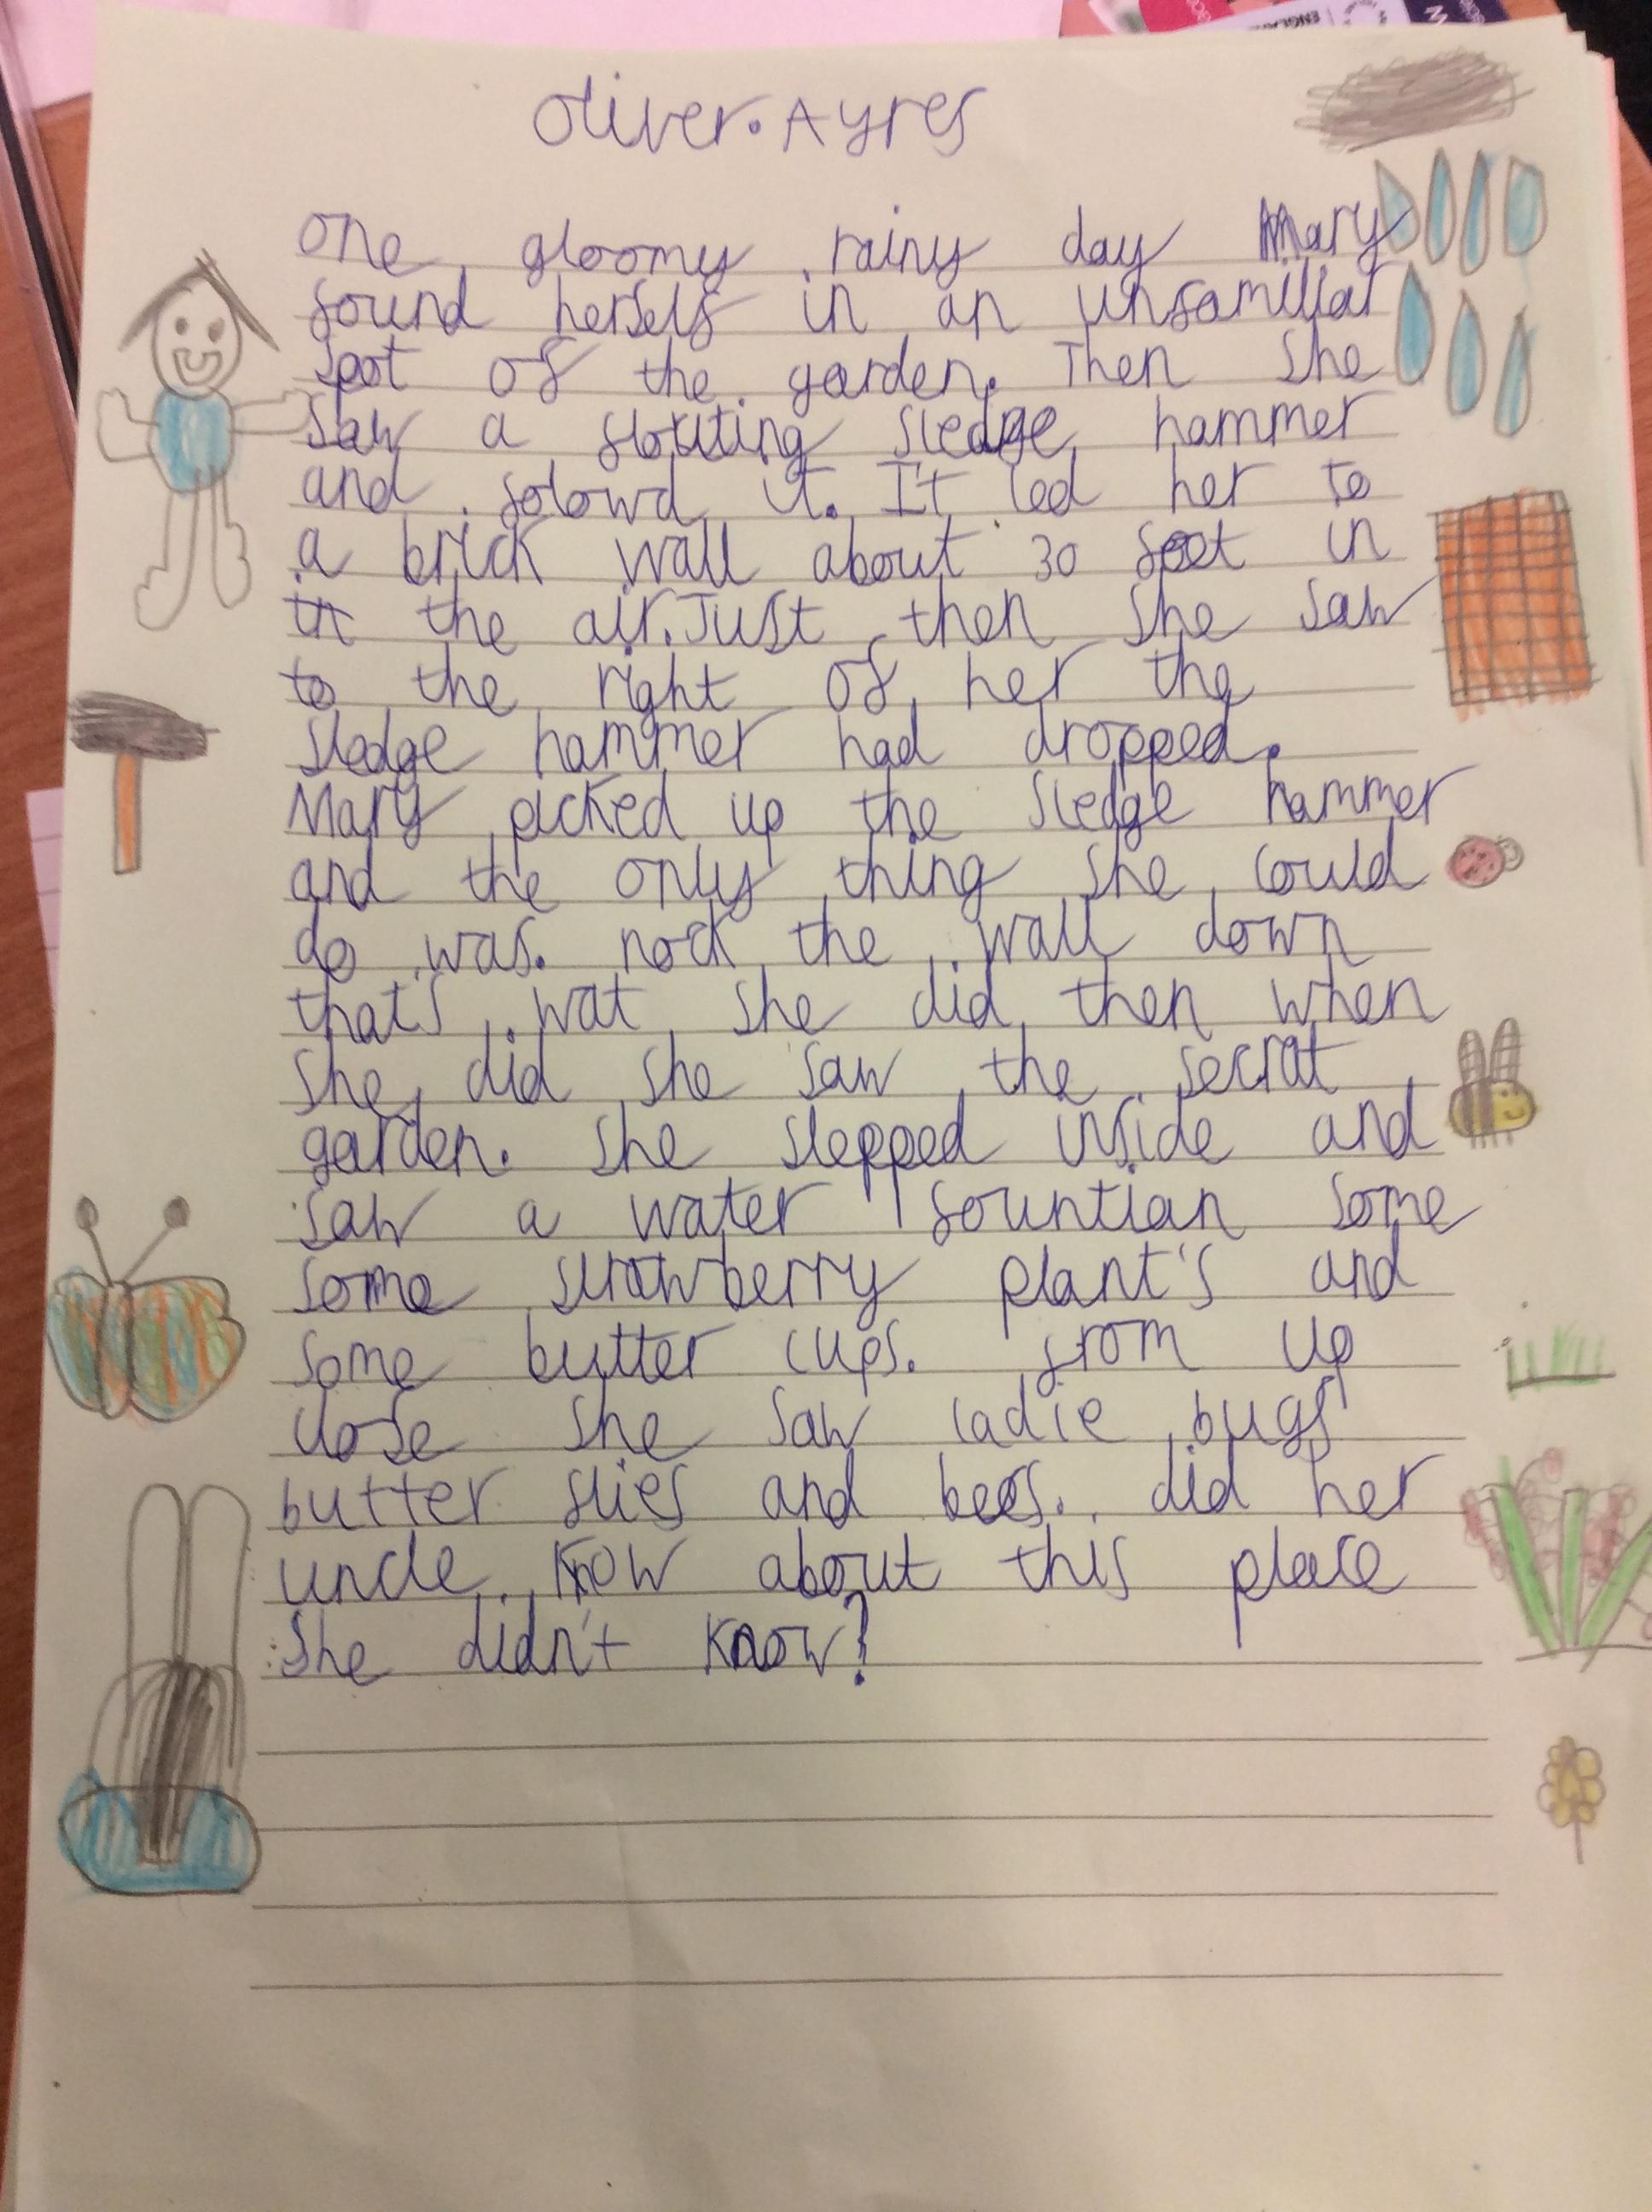 Oliver. Ayres
One gloomy rainy day Mary
found herself in an unfamillar
spot of the garden. Then she
saw a floating sledge hammer
and folowd it. It led her to
a brick wall about 30 foot in
the air. Just then she saw
to the right of her the
sledge hammer had dropped.
Mary picked up the sledge hammer
and the only thing she could
do was. nock the wall down
that's wat she did then when
she did she saw the secrat
garden. she stepped inside and
saw a water fountian some
some strawberry plant's and
some butter cups. from up
close she saw ladie bugs
butter flies and bees. did her
uncle know about this place
she didn't know?
ENGLAND